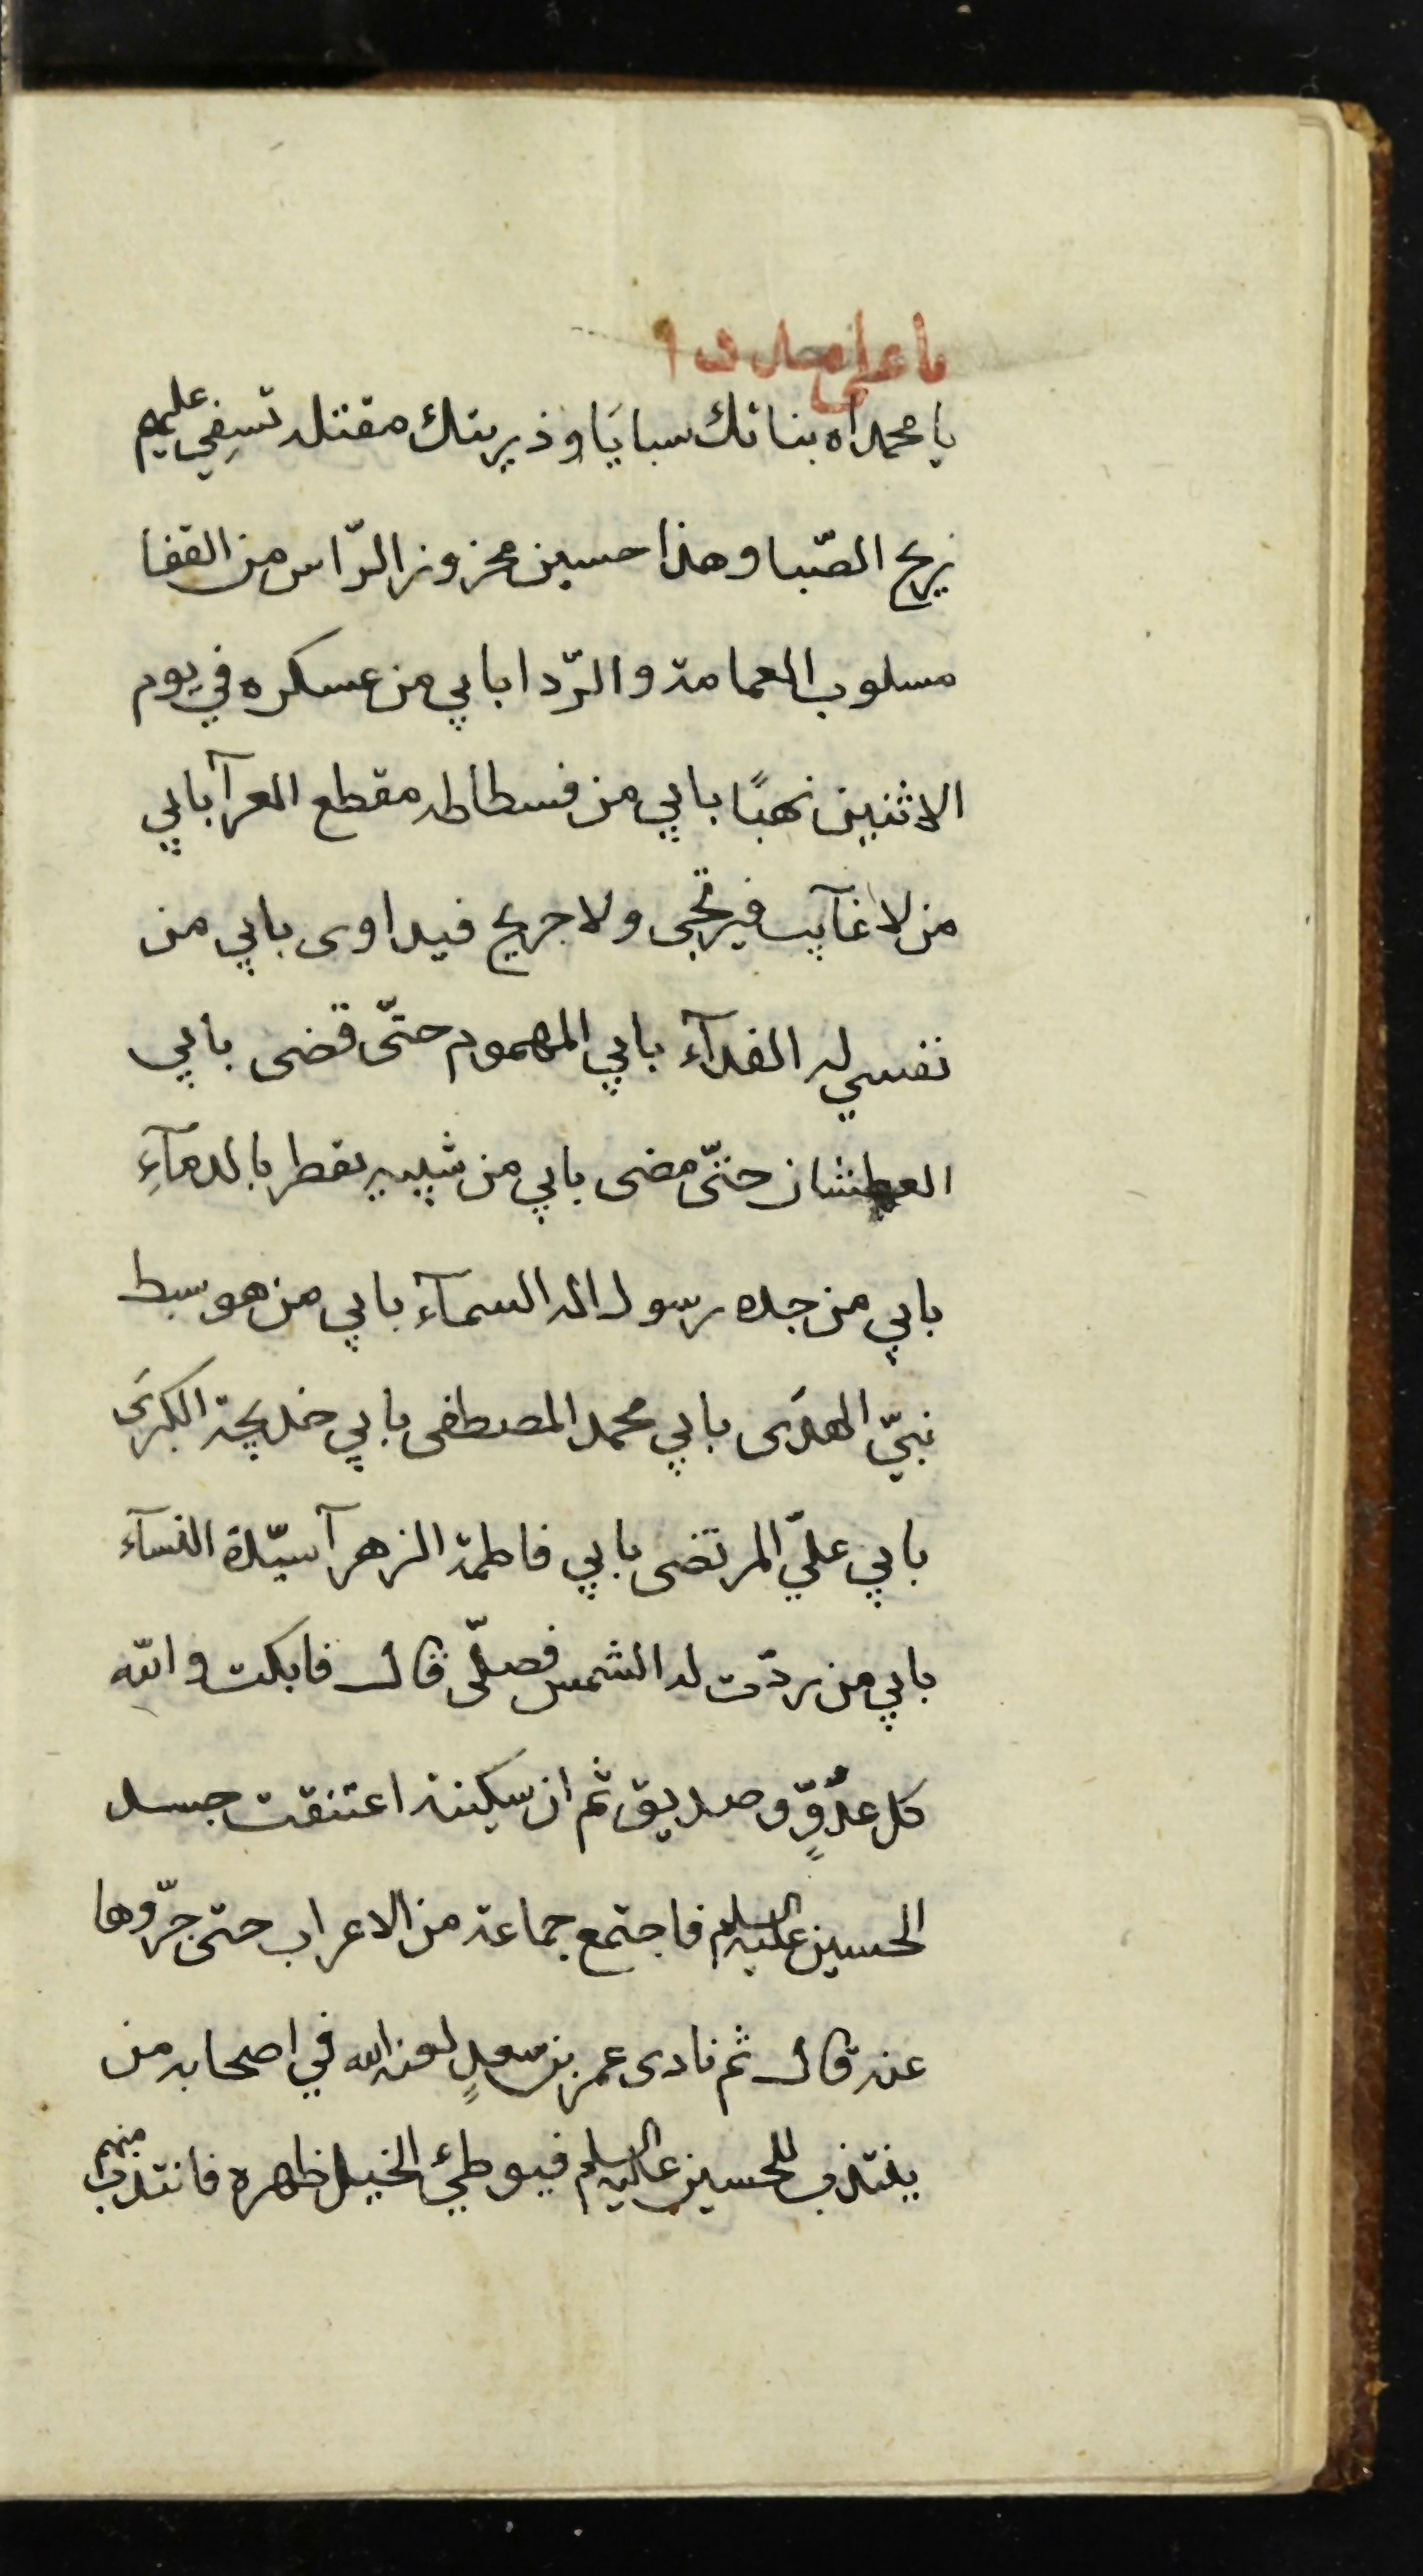 يا علي مدد
يا محمداه بناتك سبايَا وذريتك مقتله تسِفي عليهم
ريح الصّبا وهذا حسين محزوز الرّاس من القفا
مسلوب العمامة والرّدا بابي من عسكره في يوم
الاثنين نهبًا بابي من فسطاطه مقطع العرآ بابي
من لا غآيب فيرتجى ولا جريح فيداوى بابي من
نفسي له الفدآء بابي المهموم حتّى قضى بابي
العطشان حتّى مضى بابي من شيبه يقطر بالدمآءِ
بابي من جده رسول اله السمآء بابي من هو سبط
نبيّ الهدَى بابي محمد المصطفى بابي خديجة الكبرَى
بابي عليّ المرتضى بابي فاطمة الزهرآ سيّدة النسآء
بابي من ردّت له الشمس فصلّى قال فابكت والله
كل عدّوٍّ وصديق ثم ان سكينة اعتنقت جسد
الحسين عليه السلم فاجتمع جماعة من الاعراب حتى جرّوها
عنه قال ثم نادى عمر بن سعدٍ لعنه الله في اصحابه من
ينتدب للحسين عليه السلم فيوطئ الخيل ظهره فانتدب منهم